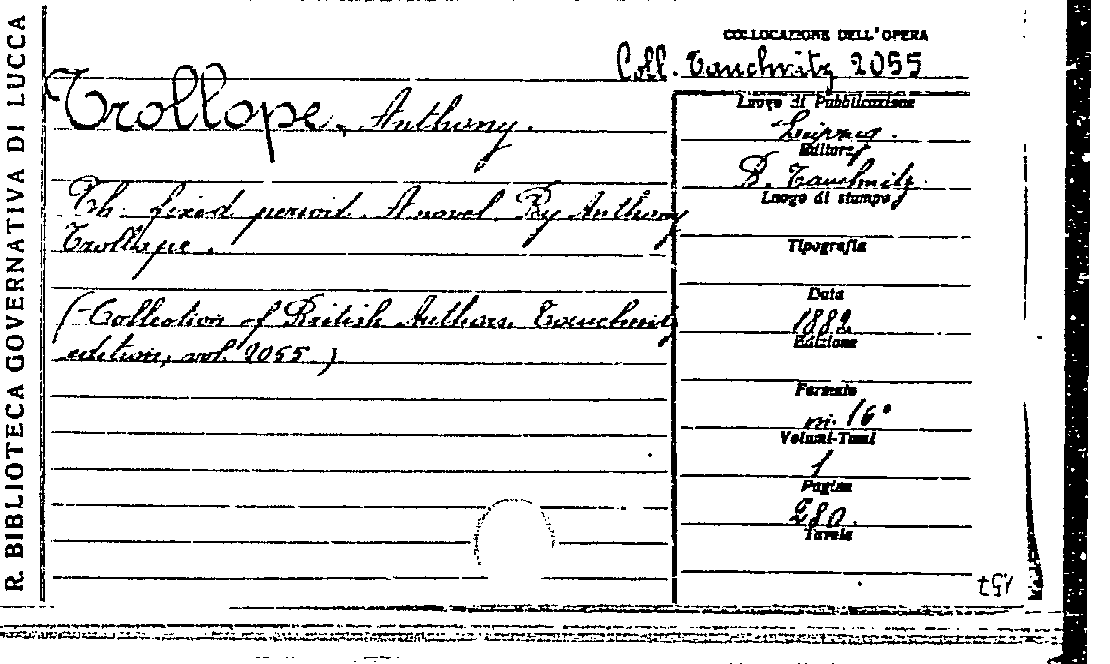 R. BIBLIOTECA GOVERNATIVA DI LUCCA
COLLOCAZIONE DELL'OPERA
Coll. Tauchnitz 2055
Trollope, Anthony.
Th. fixed period. A novel. By Anthony
Trollope.
(-Collection of British Authors. Tauchnitz
edition, vol. 2055.)
Luogo di Pubblicazione
Leipzig.
Editore
B. Tauchnitz.
Luogo di stampa
Tipografia
Data
1882.
Edizione
Formato
in-16°
Volumi-Tomi
1
Pagine
280.
Tavole